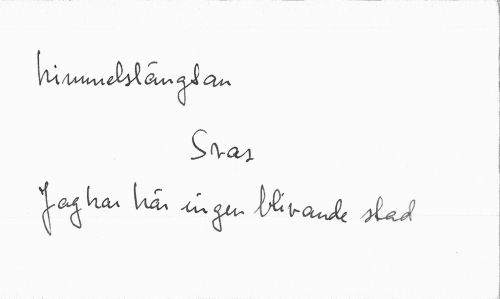 himmelslängtan
Svar
Jag har här ingen blivande stad